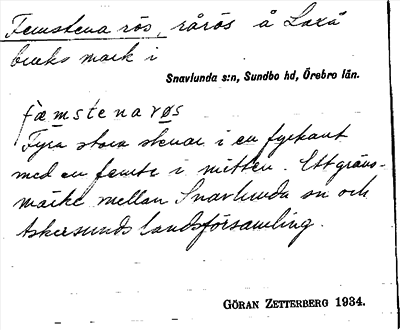 Femstena rös, rårös å Laxå
bruks mark i
Snavlunda s:n, Sundbo hd, Örebro län.
fæmstenarøs
Fyra stora stenar i en fyrkant
med en femte i mitten. Ett gräns-
märke mellan Snavlunda sn och
Askersunds landsförsamling.
GÖRAN ZETTERBERG 1934.